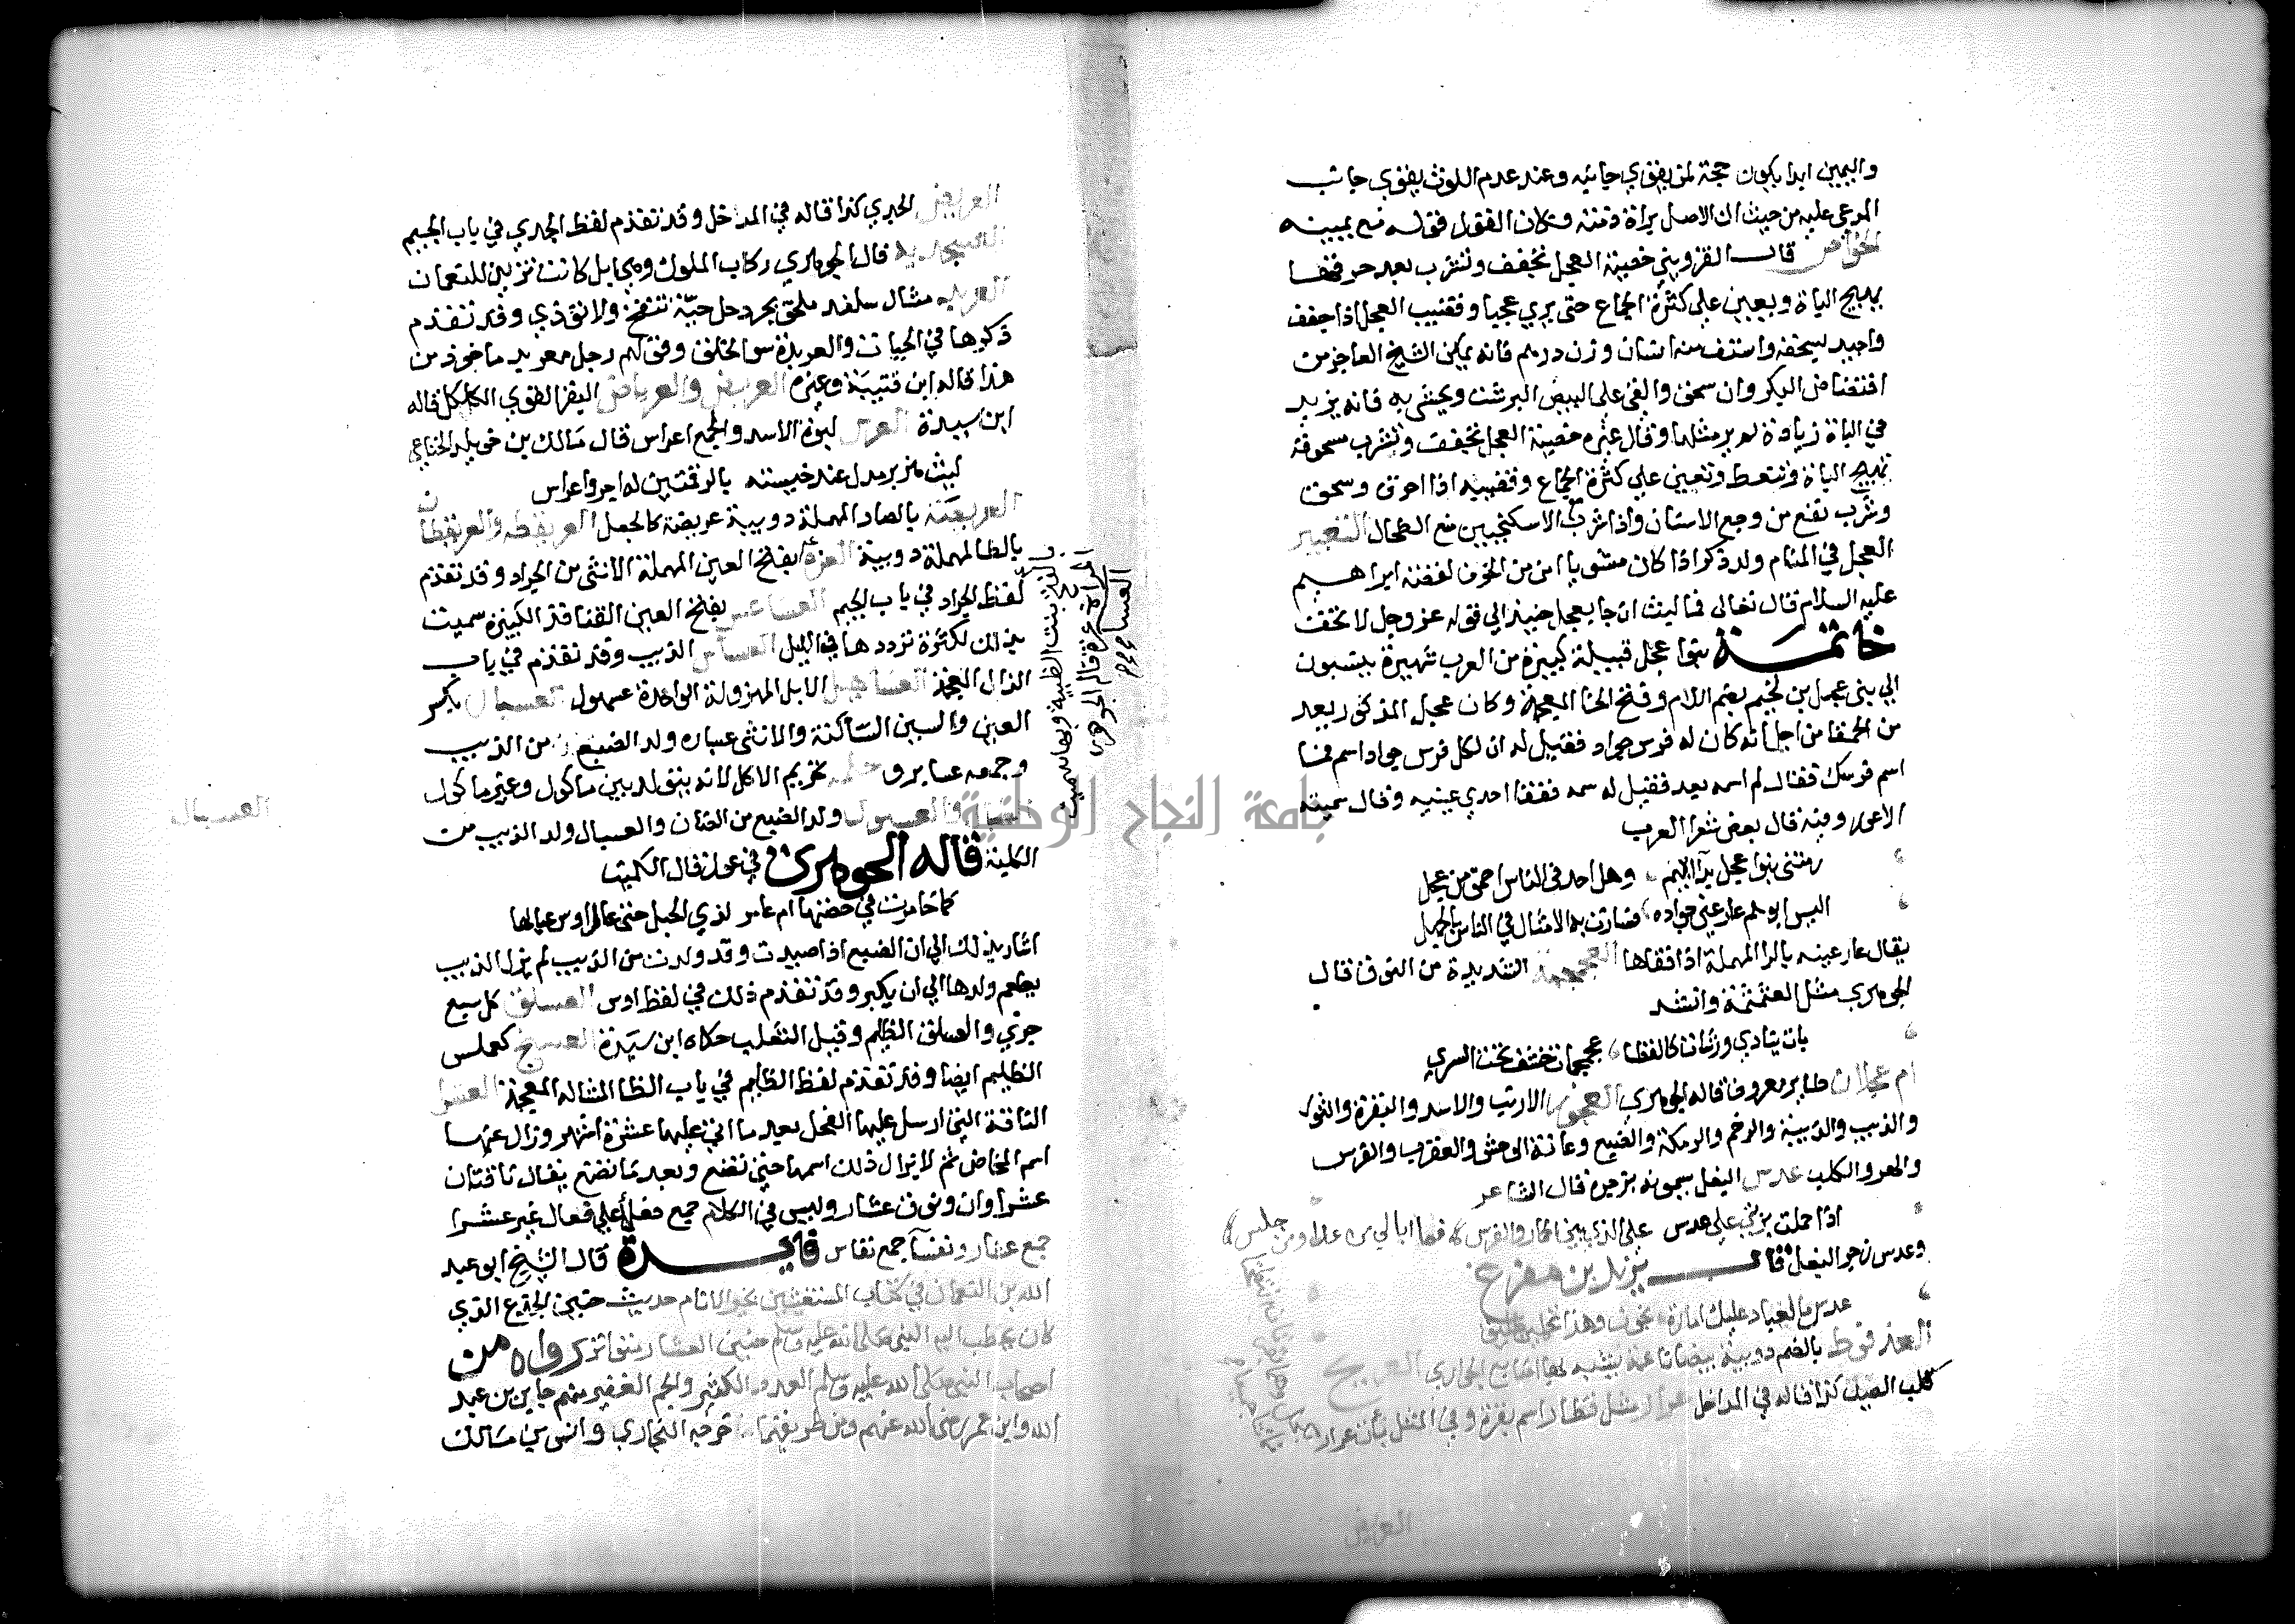 واليمين ابدا يكون حجة لمن يقوي جانبه وعند عدم اللوث يقوي جانب
المدعي عليه من حيث ان الاصل براة ذمته وكان القول قوله مع يمينه
الخواص قال القزويني خصية العجل تجفف وتشرب بعد حرقها
يهيج الباة ويعين علي كثرة الجماع حتى يري عجبا وقضيب العجل اذا جفف
واجيد سحقه واستف منه انسان وزن درهم فانه يمكن الشيخ العاجز من
افتضاض البكر وان سحق والقي على البيض البرشت وتحشي به فانه يزيد
في الباة زيادة لم ير مثلها وقال غيره خصية العجل تجفف وتشرب مسحوقة
تهيج الباة وتنعظ وتعين علي كثرة الجماع وقضيبه اذا احرق وسحق
وشرب نفع من وجع الاسنان واذا شرب الاسكنجبين نفع الطحال التعبير
العجل في المنام ولد ذكر اذا كان مشويا امن من الخوف لقصة ابراهيم
عليه السلام قال تعالى فما لبث ان جا بعجل حنيذ الي قوله عز وجل لا تخف
خاتمة بنوا عجل قبيلة كبيرة من العرب شهيرة ينسبون
الي بني عجل بن لجيم بضم اللام وفتح الخا المعجمة وكان عجل المذكور يعد
من الحمقا من اجل انه كان له فرس جواد فقيل له ان لكل فرس جواد اسم فما
اسم فرسك فقال لم اسمه بعد فقيل له سمه ففقا احدي عينيه وقال سميته
الاعور وفيه قال بعض شعرا العرب
رمتني بنوا عجل بدآ ابيهم وهل احد في الناس احمق من عجل
اليس ابوهم عار عين جواده فصارت به الامثال في الناس بالجهل
يقال عار عينه بالرا المهملة اذا فقاها العجمجمة الشديدة من النوق قال
الجوهري مثل العثمثمة وانشد
بات يباري ورشات كالقطا عجمجمات خشف تحت السري
ام عجلان طاير معروف قاله الجوهري العجوز الارنب والاسد والبقرة والثور
والذيب والذيبة والرخم والرمكة والضبع وعانة الوحش والعقرب والفرس
والهر والكلب عدس البغل سمونه بزجره قال الشاعر
اذا حملت بزتي علي عدس علي الذي بين الحمار والفرس فما ابالي من غدا ومن جلس
وعدس زجر البغل قال يزيد بن مفرغ
عدس ما لعباد عليك امارة نجوت وهذا تحملين طليق
العذفوط بالضم دويبة بيضا ناعمة يشبه بها اصابع الجواري العربج
كلب الصيد كذا قاله في المداخل عرار مثل قطام اسم بقرة وفي المثل بأت عرار
العربض
العربض الجدي كذا قاله في المداخل وقد تقدم لفظ الجدي في باب الجيم
العسجدية قال الجوهري ركاب الملوك وهي ابل كانت تزين للنعمان
العربد مثال سلغد ملحق بجردحل حيّة تنفخ ولا تؤذي وقد تقدم
ذكرها في الحيات والعربدة سوا الخلق وقولهم رجل معربد ماخوذ من
هذا قاله ابن قتيبة وغيره العربض والعرباض البقر القوي الكلكل قاله
ابن سيدة العرس لبوة الاسد والجمع اعراس قال مالك بن خويلد الخناعي
ليث هزبر مدل عند خيسته بالرقمتين له اجر واعراس
العريقصة بالصاد المهملة دويبة عريضة كالجعل العريقطه والعريقطان
بالطا لمهملة دويبة العزة بفتح العين المهملة الانثى من الجراد وقد تقدم
لفظ الجراد في باب الجيم العساعس بفتح العين القنافذ الكبيرة سميت
بذلك لكثرة ترددها في الليل العساس الذيب وقد تقدم في باب
الذال العجمة العساهيل الابل المهزولة الواحدة عسهول العسبار بكسر
العين والسين الساكنة والانثى عسباره ولد الضبع من الذيب
وجمعه عسابر وحكمه تحريم الاكل لانه يتولد بين ماكول وغير ماكول
والعسبور ولد الضبع من الضبان والعسبال ولد الذيب من
الكلبة قاله الجوهري في عول قال الكميت
كما خامرت في حضنها ام عامر لذي الحبل حتى عال اوس عيالها
اشار بذلك الي ان الضبع اذا صيدت وقد ولدت من الذيب لم يزل الذيب
يطعم ولدها الي ان يكبر وقد تقدم ذلك في لفظ اوس العسلق كل سبع
جرئ والعسلق الظليم وقيل الثعلب حكاه ابن سيدة العسنج كعملس
الظليم ايضا وقد تقدم لفظ الظليم في باب الظا المشاله المعجمة العشرا
الناقة التي ارسل عليها الفحل بعد ما اتي عليها عشرة اشهر وزال عنها
اسم المخاض ثم لا يزال ذلك اسمها حتي تضع وبعد ما تضع يقال ناقتان
عشراوان ونوق عشار وليس في الكلام جمع فعلأ علي فعال غير عشرا
جمع عشار ونفسآ جمع نفاس فايدة قال الشيخ ابو عبد
الله بن النعمان في كتاب المستغيثين بخير الانام حديث حنين الجذع الذي
كان يخطب اليه النبي صلى الله عليه وسلم حنين العشار متواتر رواه من
اصحاب النبي صلى الله عليه وسلم العدد الكثير والجم الغفير منهم جابر بن عبد
الله وابن عمر رضي الله عنهم ومن طريقهما اخرجه البخاري وانس بن مالك
العسبال
جامعة النجاح الوطنية